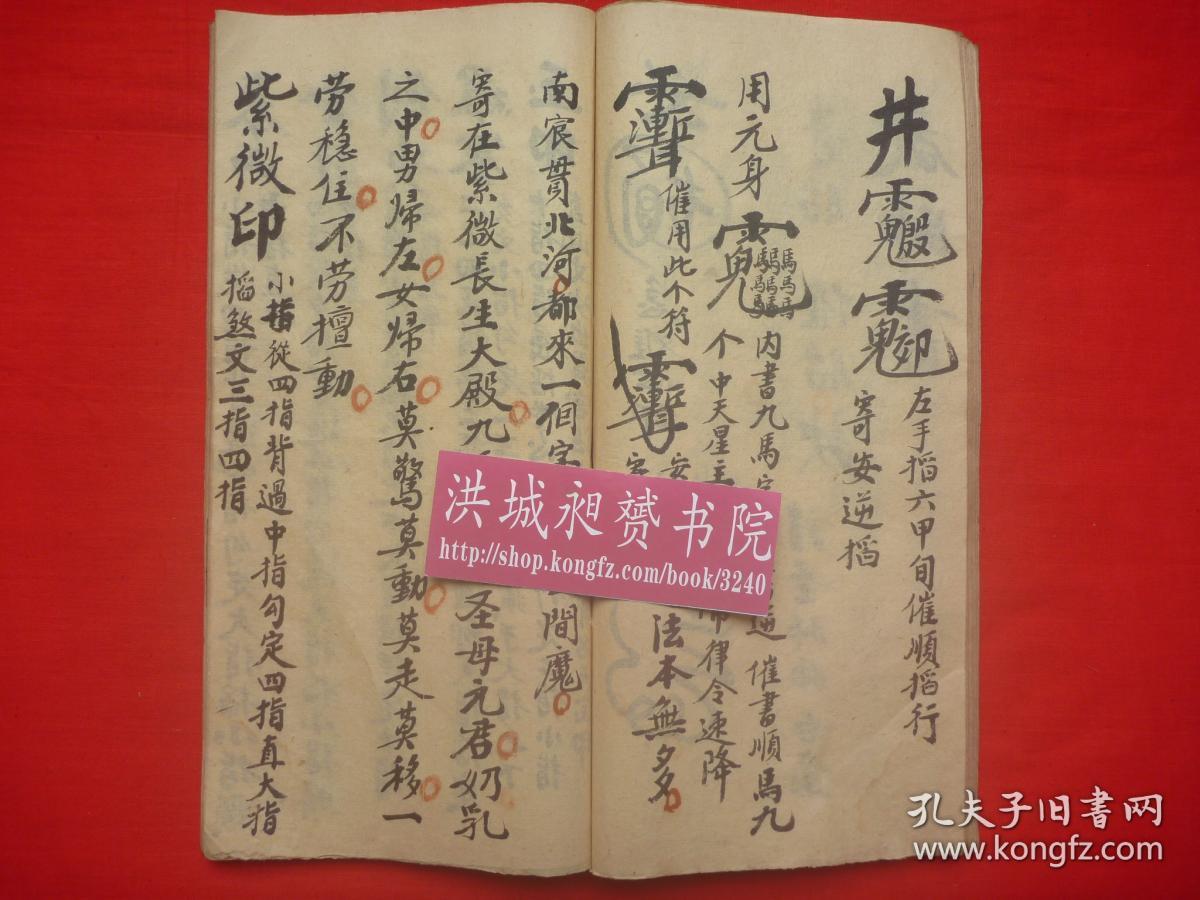 井
左手掐六甲旬催順掐行
寄安逆掐
用元身
内書九馬
逆 催書順馬九
个中天星主
律令速降
催用此个符
安
法本無多
南宸貫北河都來一個
間魔
寄在紫微長生大殿九
圣母元君奶乳
之中男歸左女歸右莫驚莫動莫走莫移一
劳穏住不劳擅動
紫微印
小指從四指背過中指勾定四指直大指
掐煞文三指四指
洪城昶赟书院
http://shop.kongfz.com/book/3240
孔夫子旧书网
www.kongfz.com